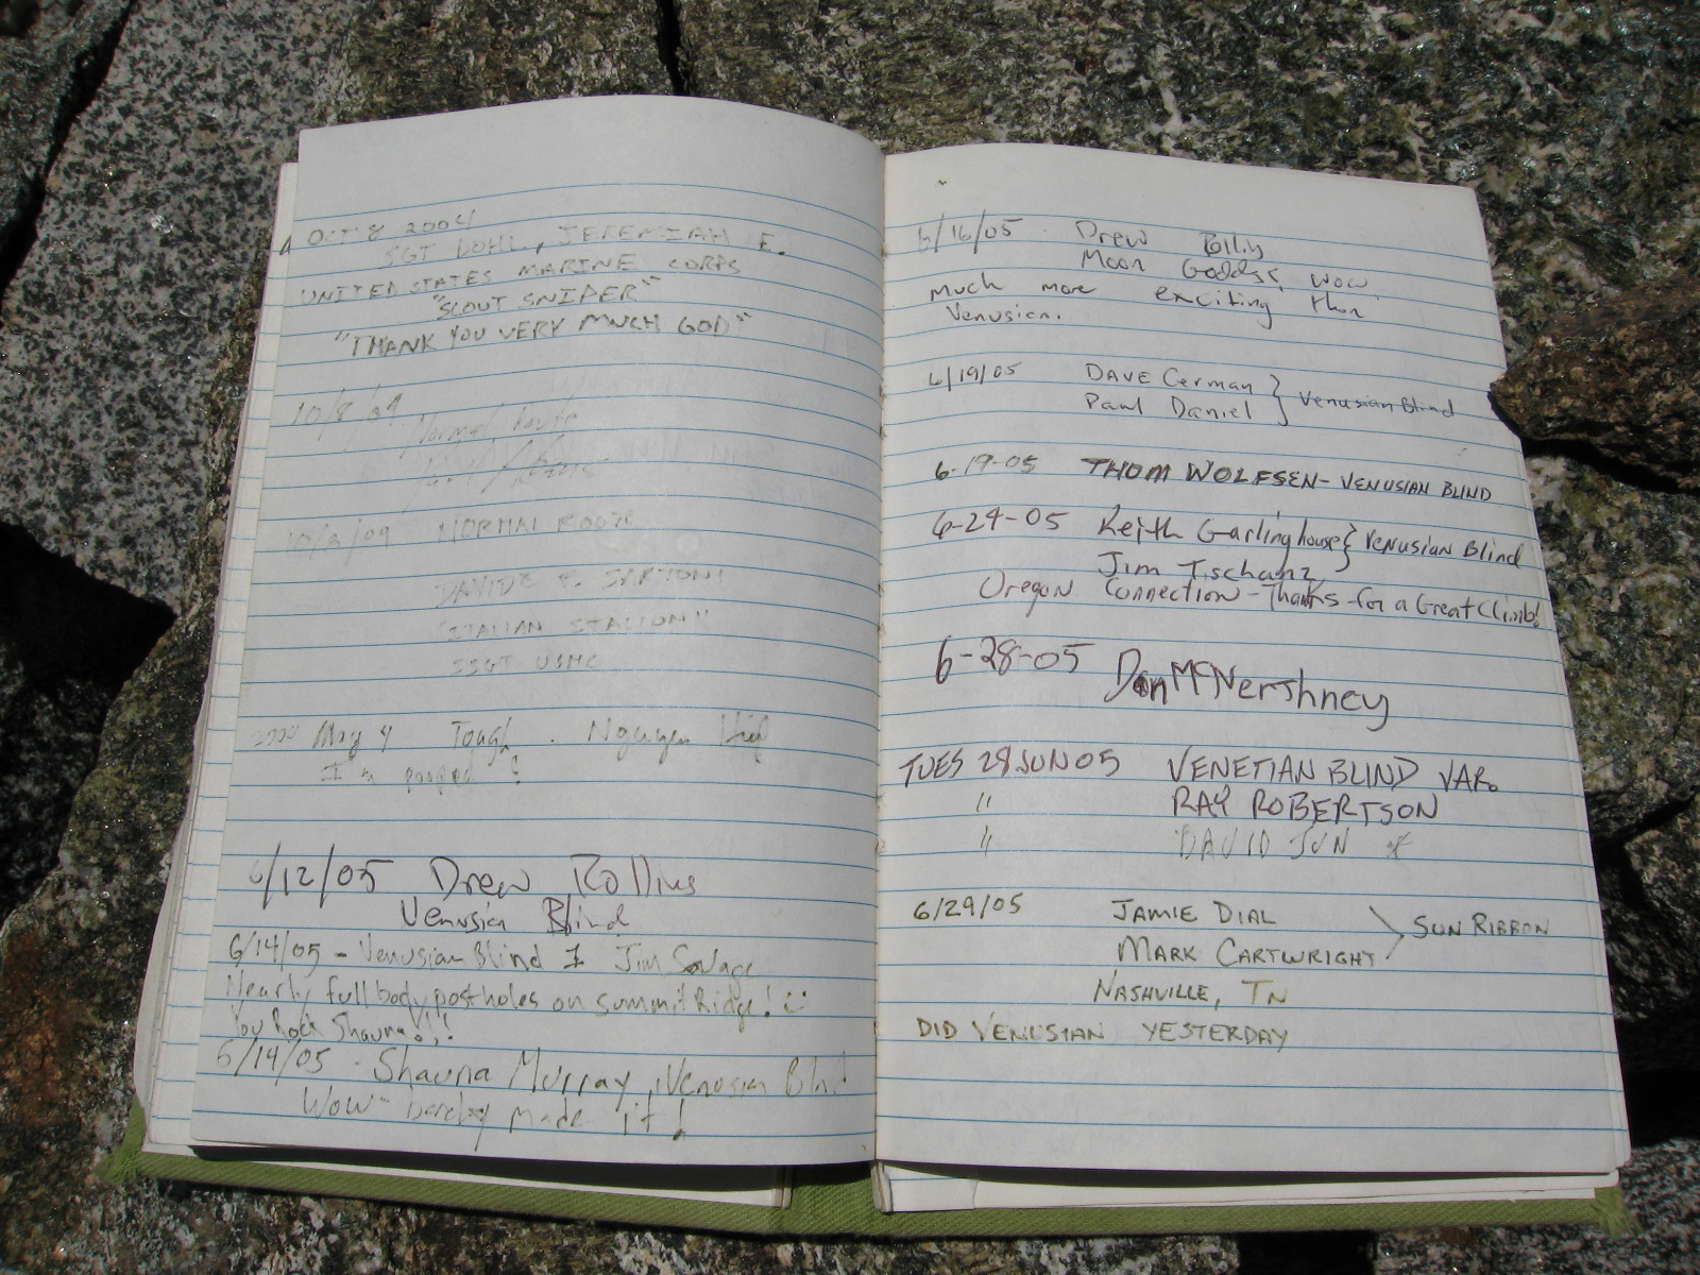 OCT 8 2004
SGT DOHL, JEREMIAH E.
UNITED STATES MARINE CORPS
"SCOUT SNIPER"
"THANK YOU VERY MUCH GOD"
Normal Route
NORMAL ROUTE
DAVIDE F. SARTONI
"ITALIAN STALLION"
SSGT USMC
May 4 Tough . Nguyen
I'm pooped
6/12/05 Drew Rollins
Venusian Blind
6/14/05 - Venusian Blind Jim Savage
Nearly full body postholes on summit Ridge!
You Rock Shauna!!!
6/14/05 Shauna Murray, Venusian Blind
Wow - barely made it!
6/16/05 Drew
Moon Goddess, wow.
much more exciting than
Venusian.
6/19/05 DAVE German } Venusian Blind
Paul Daniel
6-19-05 THOM WOLFSEN - VENUSIAN BLIND
6-24-05 Keith Garlinghouse } Venusian Blind
Jim Tschanz
Oregon Connection - Thanks for a Great Climb!
6-28-05 Don McNershney
TUES 28 JUN 05 VENETIAN BLIND VAR.
" RAY ROBERTSON
" DAVID JUN
6/29/05 JAMIE DIAL
MARK CARTWRIGHT > SUN RIBBON
NASHVILLE, TN
DID VENUSIAN YESTERDAY